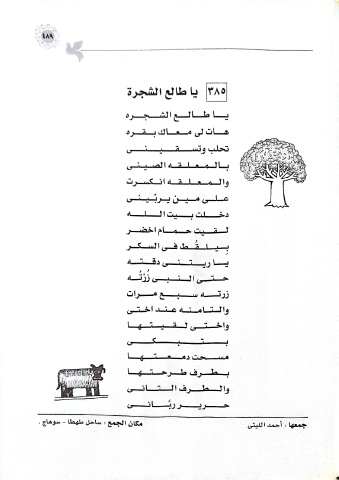 ٤٨٩
٣٨٥ يا طالع الشجرة
يا طالع الشجره
هات لى معاك بقره
تحلب وتسقينى
بالمعلقه الصينى
والمعلقه انكسرت
على مين يربّينى
دخلت بيت الله
لقيت حمام اخضر
بيلقُط فى السكر
يا ريتنى دقته
حتى النبى زُرْتُه
زرته سبع مرات
والتامنه عند اختى
واختى لقيتها
بتبكى
مسحت دمعتها
بطرف طرحتها
والطرف التانى
حرير ربّانى
جمعها : أحمد الليثى
مكان الجمع : ساحل طهطا - سوهاج .